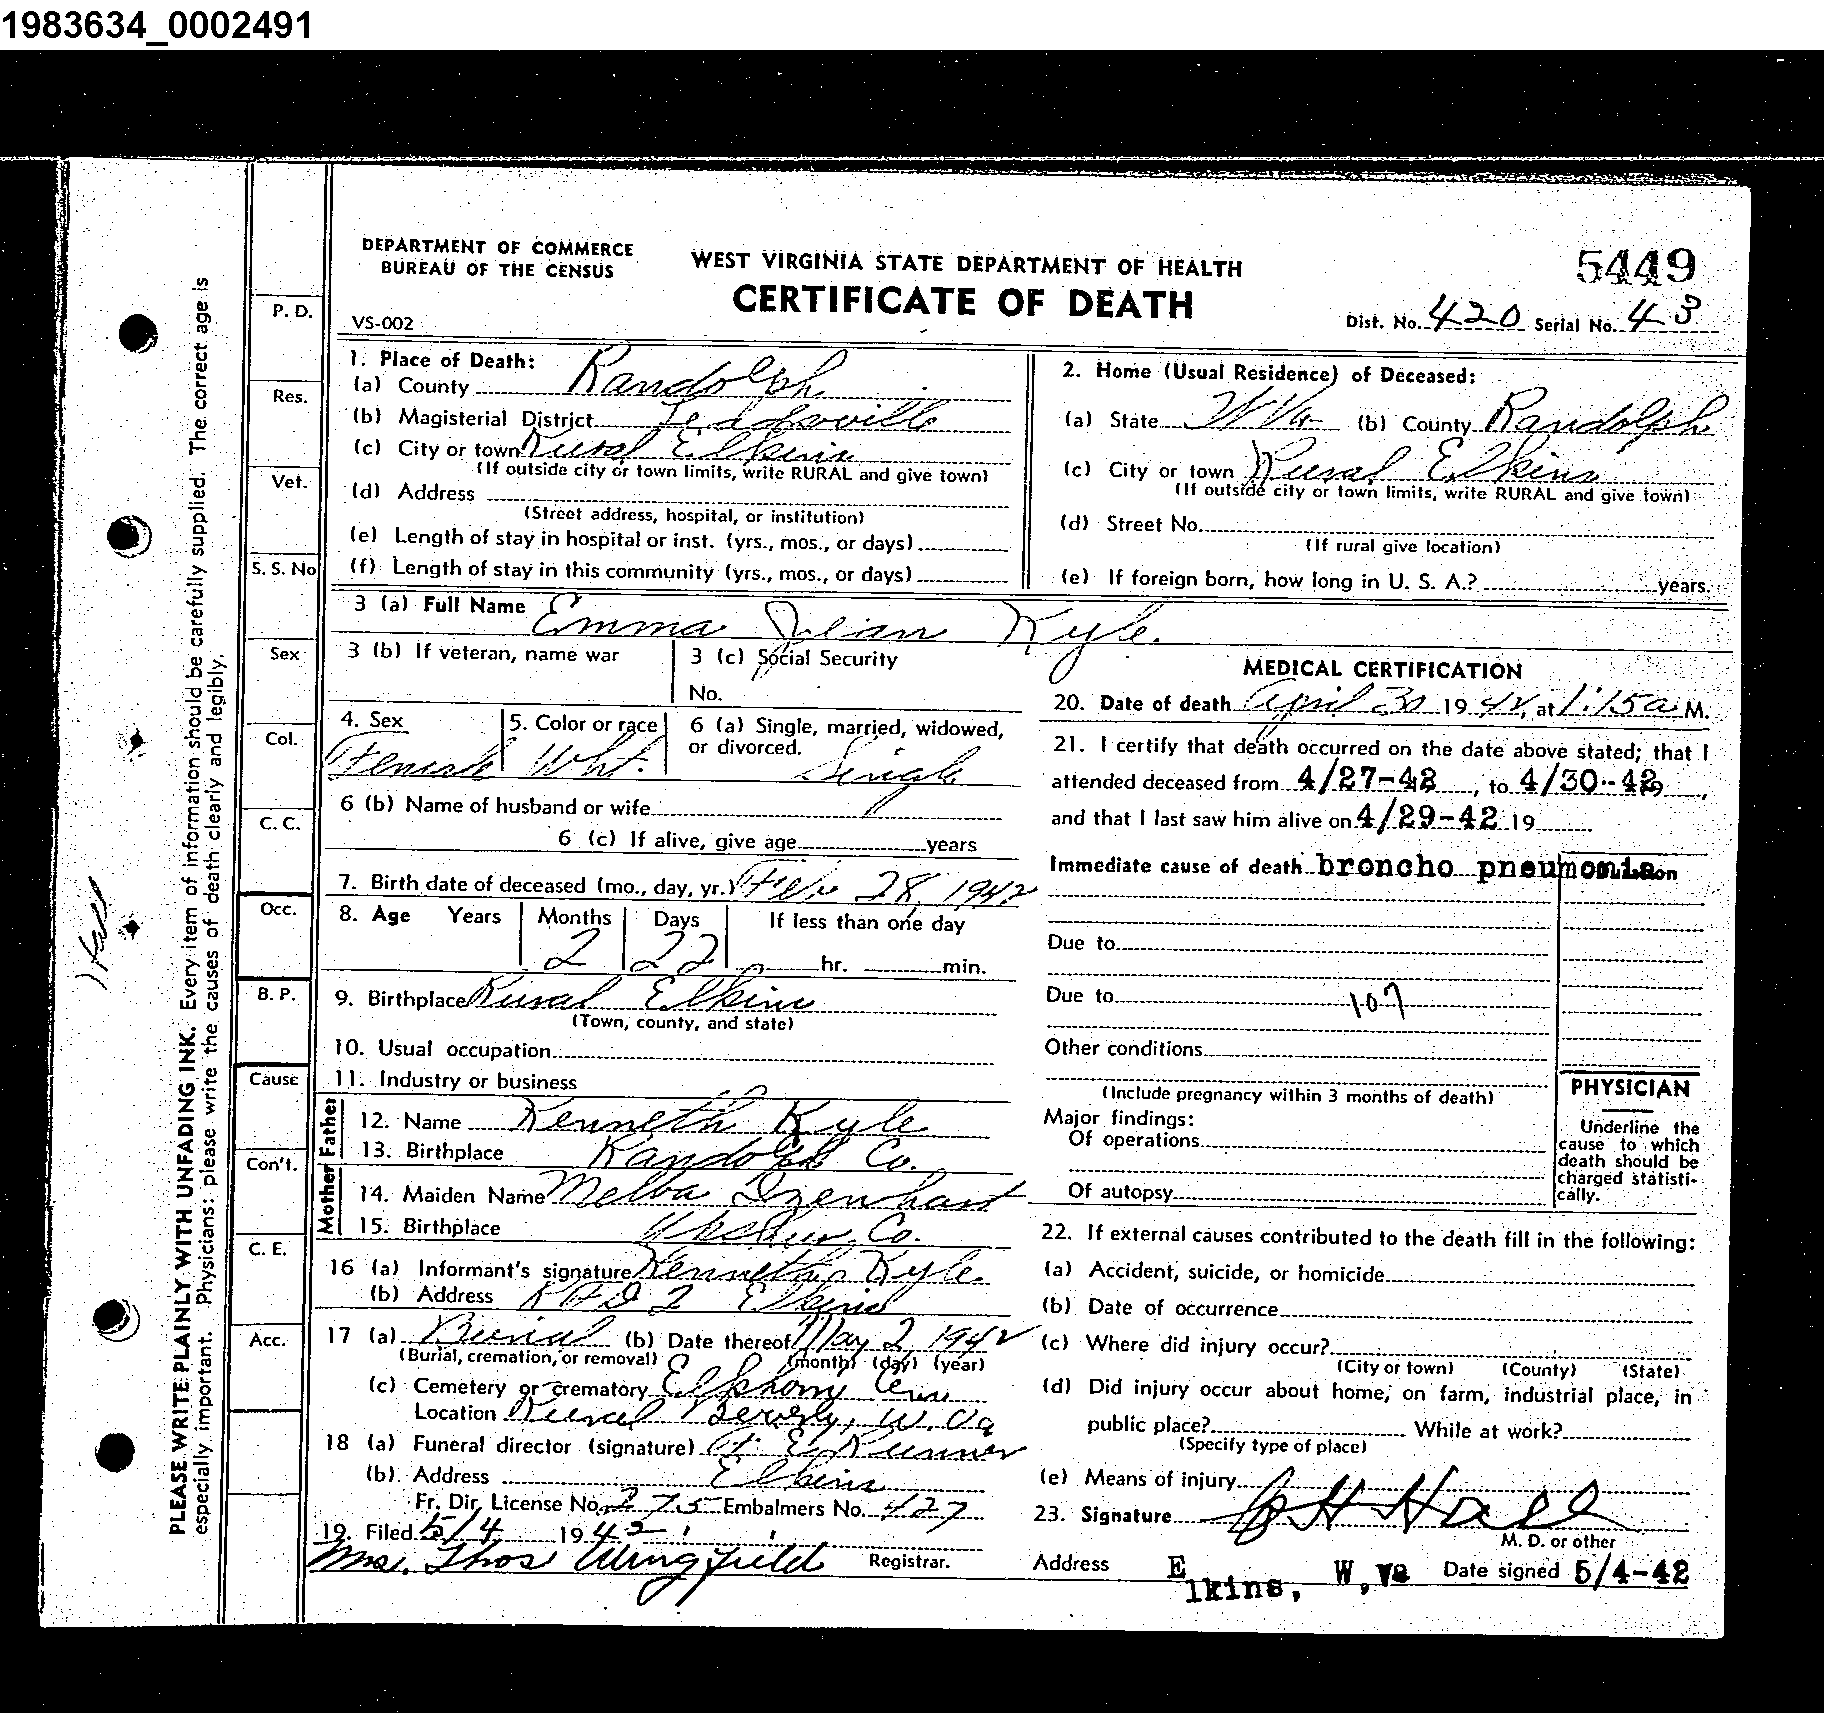 1983634_0002491
DEPARTMENT OF COMMERCE
BUREAU OF THE CENSUS
WEST VIRGINIA STATE DEPARTMENT OF HEALTH
CERTIFICATE OF DEATH
5449
VS-002
Dist. No. 420 Serial No. 43
1. Place of Death:
(a) County Randolph
(b) Magisterial District
(c) City or town Rural Elkins
(If outside city or town limits, write RURAL and give town)
(d) Address
(Street address, hospital, or institution)
(e) Length of stay in hospital or inst. (yrs., mos., or days)
(f) Length of stay in this community (yrs., mos., or days)
2. Home (Usual Residence) of Deceased:
(a) State W Va (b) County Randolph
(c) City or town Rural Elkins
(If outside city or town limits, write RURAL and give town)
(d) Street No.
(If rural give location)
(e) If foreign born, how long in U. S. A.? years.
3 (a) Full Name Emma Jean Kyle.
3 (b) If veteran, name war
3 (c) Social Security
No.
4. Sex Female
5. Color or race Wht.
6 (a) Single, married, widowed,
or divorced. Single
6 (b) Name of husband or wife
6 (c) If alive, give age years
7. Birth date of deceased (mo., day, yr.) Feb 28, 1942
8. Age Years Months Days If less than one day
2 22 hr. min.
9. Birthplace Rural Elkins
(Town, county, and state)
10. Usual occupation
11. Industry or business
Father
12. Name Kenneth Kyle
13. Birthplace Randolph Co.
Mother
14. Maiden Name Melba Izenhart
15. Birthplace Upshur Co.
16 (a) Informant's signature Kenneth Kyle
(b) Address R F D 2 Elkins
17 (a) Burial (b) Date thereof May 2 1942
(Burial, cremation, or removal) (month) (day) (year)
(c) Cemetery or crematory Cem
Location Rural Beverly, W. Va
18 (a) Funeral director (signature) Runner
(b) Address Elkins
Fr. Dir. License No. 275 Embalmers No. 427
19. Filed 5/4 1942
Mrs. Thos Wingfield Registrar.
MEDICAL CERTIFICATION
20. Date of death April 30 1942, at 1:15 a M.
21. I certify that death occurred on the date above stated; that I
attended deceased from 4/27-42, to 4/30-42,
and that I last saw him alive on 4/29-42 19
Immediate cause of death broncho pneumonia
Due to
Due to 107
Other conditions
(Include pregnancy within 3 months of death)
Major findings:
Of operations
Of autopsy
PHYSICIAN
Underline the
cause to which
death should be
charged statisti-
cally.
22. If external causes contributed to the death fill in the following:
(a) Accident, suicide, or homicide
(b) Date of occurrence
(c) Where did injury occur?
(City or town) (County) (State)
(d) Did injury occur about home, on farm, industrial place, in
public place? While at work?
(Specify type of place)
(e) Means of injury
23. Signature Hall
M. D. or other
Address Elkins, W,Va Date signed 5/4-42
P. D.
Res.
Vet.
S. S. No
Sex
Col.
C. C.
Occ.
B. P.
Cause
Con't.
C. E.
Acc.
PLEASE WRITE PLAINLY WITH UNFADING INK. Every item of information should be carefully supplied. The correct age is
especially important. Physicians: please write the causes of death clearly and legibly.